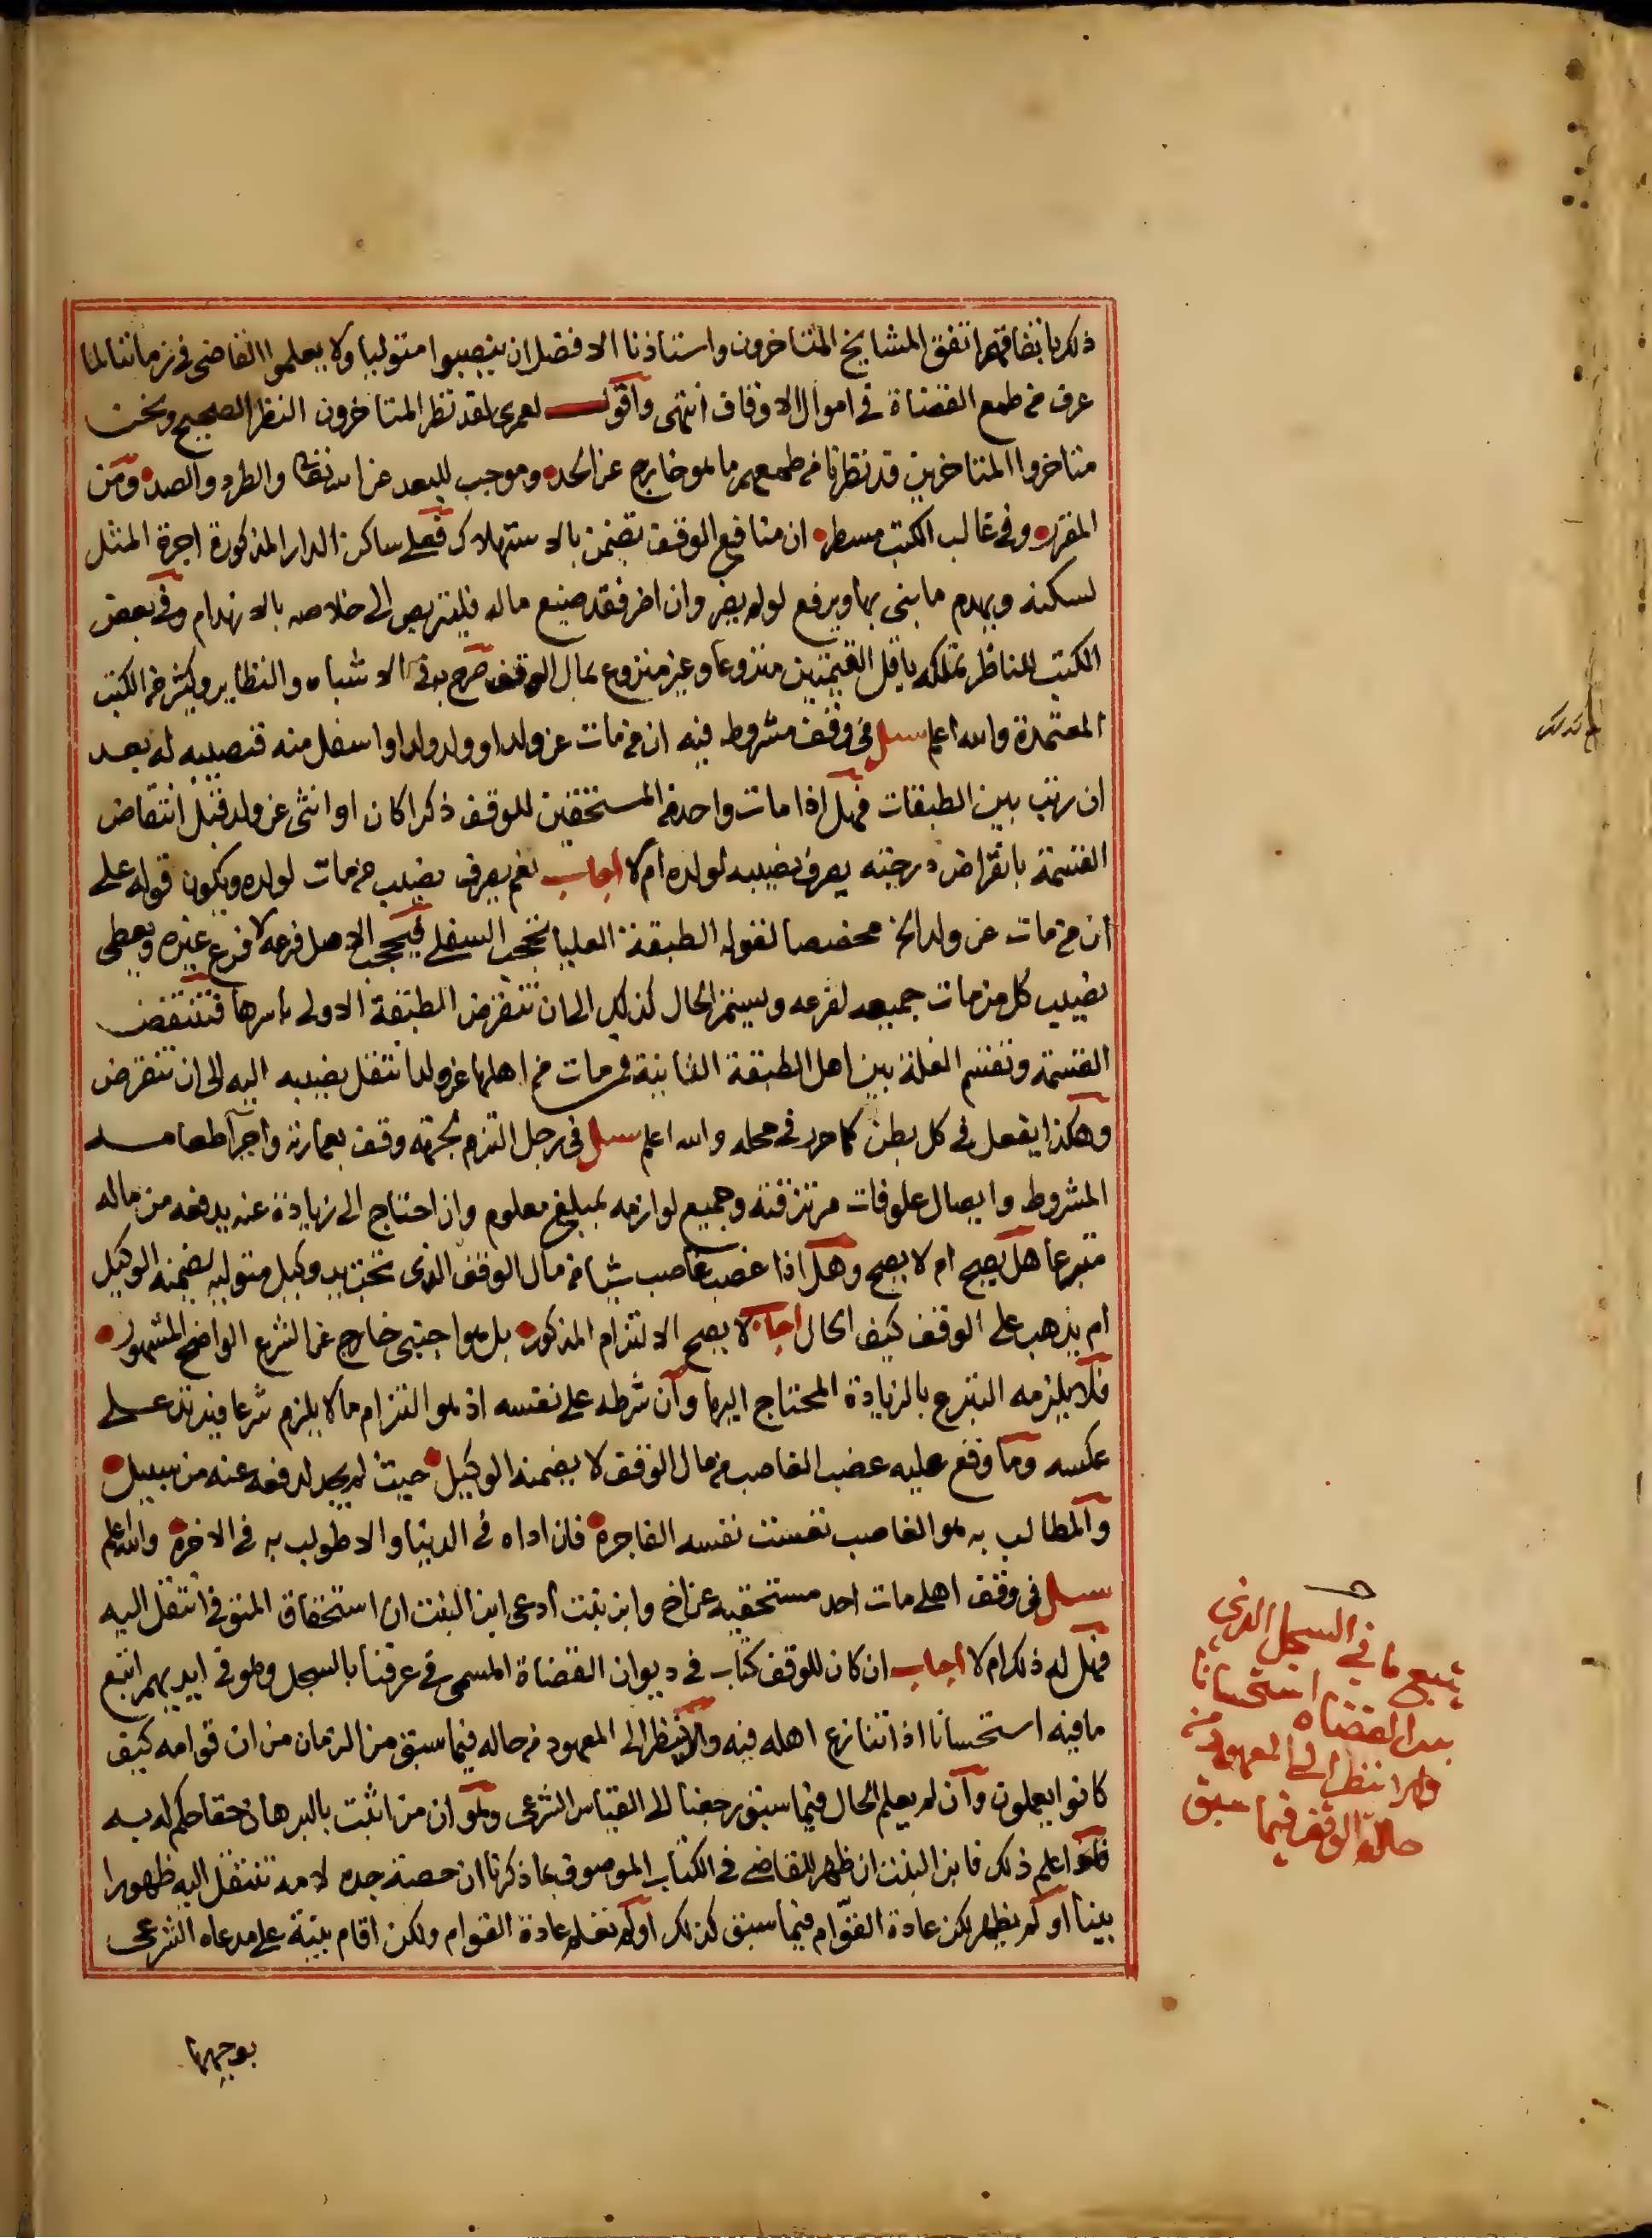 ذلك باتفاقهم اتفق المشايخ المتاخرون واستاذنا الافضل ان ينصبوا متوليا ولا يعلموا القاضي في زماننا لما
عرف من طمع القضاة في اموال الاوقاف انتهى واقول لعمري لقد نظر المتاخرون النظر الصحيح ونحن
متاخروا المتاخرين قد نظرنا من طمعهم ما هو خارج عن الحد وموجب للبعد عن الله تعالى والطرد والصد ومن
المقرر وفي غالب الكتب مسطر ان منافع الوقف تضمن بالاستهلاك فعلى ساكن الدار المذكورة اجرة المثل
لسكنه ويهدم ما بنى بها ويرفع لو لم يضر وان اضر فقد ضيع ماله فليتربص الى خلاصه بالانهدام وفي بعض
الكتب للناظر تملكه باقل القيمتين منزوعا وغير منزوع بمال الوقف صرح به في الاشباه والنظاير وكثير من الكتب
المعتمدة والله اعلم سئل في وقف مشروط فيه ان من مات عن ولد او ولد ولد او اسفل منه فنصيبه له بعد
ان رتب بين الطبقات فهل اذا مات واحد من المستحقين للوقف ذكرا كان او انثى عن ولد قبل انتقاض
القسمة بانقراض درجته يصرف نصيبه لولده ام لا اجاب نعم يصرف نصيب من مات لولده ويكون قوله على
ان من مات عن ولد الخ مخصصا لقوله الطبقة العليا تحجب السفلى فيحجب الاصل فرعه لا فرع غيره ويعطى
نصيب كل من مات جميعه لفرعه ويستمر الحال كذلك الى ان تنقرض الطبقة الاولى باسرها فتنتقض
القسمة وتقسم الغلة بين اهل الطبقة الثانية فمن مات من اهلها عن ولد انتقل نصيبه اليه الى ان تنقرض
وهكذا يفعل في كل بطن كما حرر في محله والله اعلم سئل في رجل التزم بجهة وقف بعمارته واجرآ طعامـــه
المشروط وايصال علوفات مرتزقته وجميع لوازمه بمبلغ معلوم وان احتاج الى زيادة عنه يدفعه من ماله
متبرعا هل يصح ام لا يصح وهل اذا غصب غاصب شيا من مال الوقف الذي تحت يد وكيل متوليه يضمنه الوكيل
ام يذهب على الوقف كيف الحال اجاب لا يصح الالتزام المذكور بل هو اجنبي خارج عن الشرع الواضح المشهور
فلا يلزمه التبرع بالزيادة المحتاج اليها وان شرطه على نفسه اذ هو التزام ما لا يلزم شرعا فيرتد على
عكسه وما وقع عليه غصب الغاصب من مال الوقف لا يضمنه الوكيل حيث لم يجد لدفعه عنه من سبيل
والمطالب به هو الغاصب تعست نفسه الفاجرة فان اداه في الدنيا والا طولب به في الاخرة والله اعلم
سئل في وقف اهلي مات احد مستحقيه عن اخ وابن بنت ادعى ابن البنت ان استحقاق المتوفى انتقل اليه
فهل له ذلك ام لا اجاب ان كان للوقف كتاب في ديوان القضاة المسمى في عرفنا بالسجل وهو في ايديهم اتبع
ما فيه استحسانا اذا تنازع اهله فيه والا ينظر الى المعهود من حاله فيما سبق من الزمان من ان قوامه كيف
كانوا يعملون وان لم يعلم الحال فيما سبق رجعنا الى القياس الشرعي وهو ان من اثبت بالبرهان حقا حكم له به
فلو اعلم ذلك فابن البنت ان ظهر للقاضي في الكتاب الموصوف بما ذكرنا ان حصة جده لامه تنتقل اليه ظهورا
بينا او لم يظهر لكن عادة القوام فيما سبق كذلك او لم تعلم عادة القوام ولكن اقام بينة على مدعاه الشرعي
بوجهها
يتبع ما في السجل الذي
بيد القضاه استحسانا
والا ينظر الى المعهود من
حالة الوقف فيما سبق